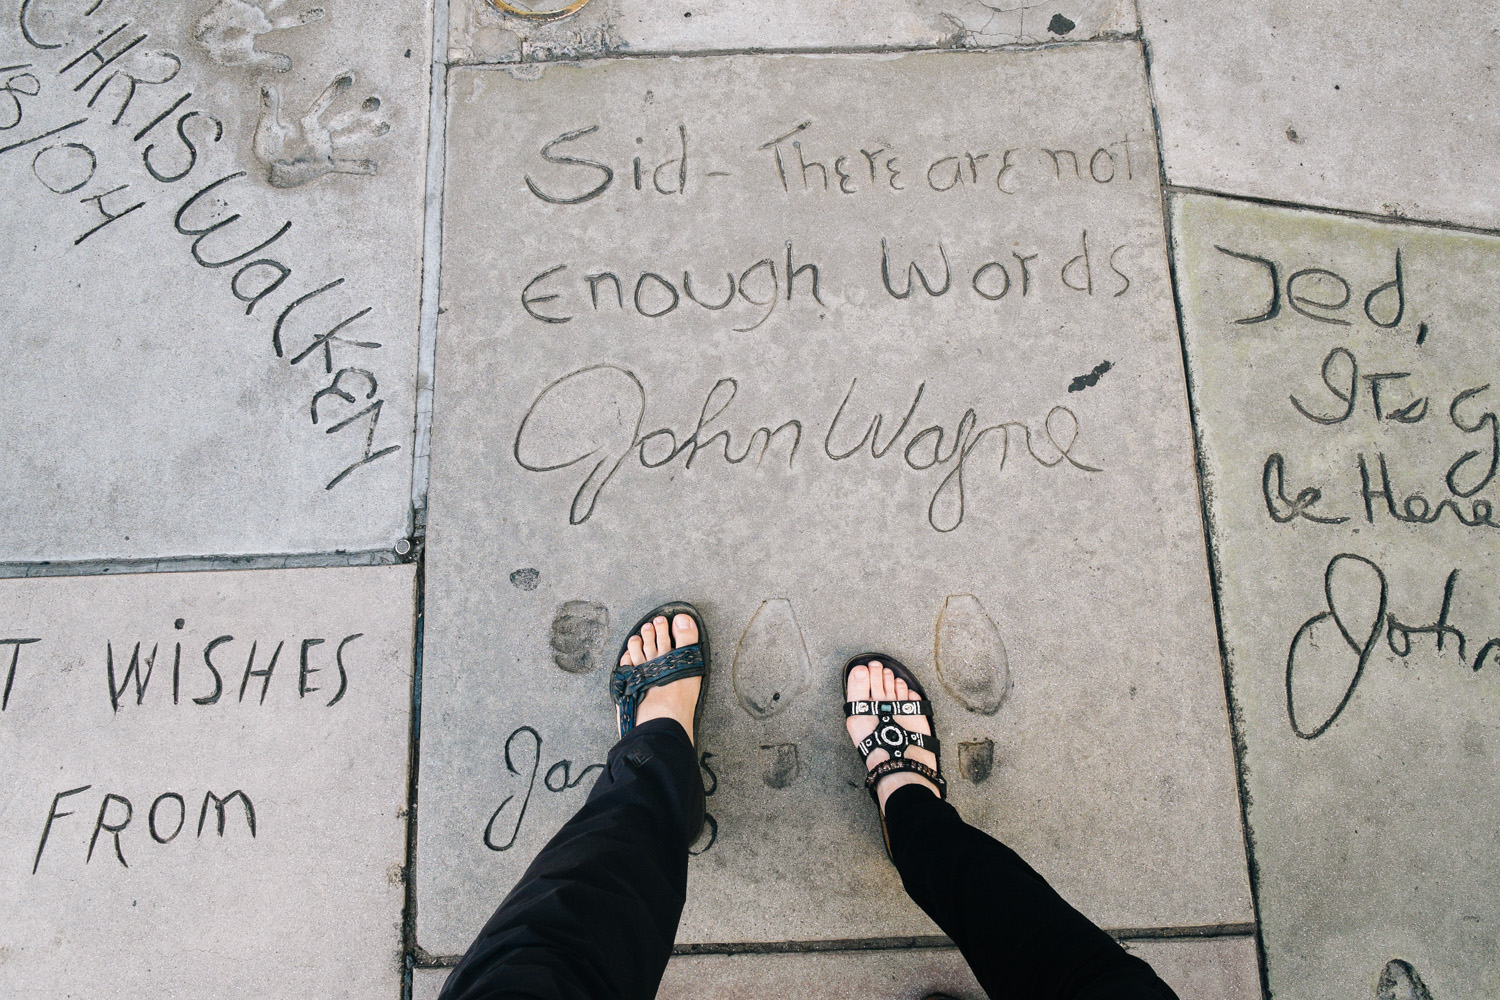 CHRIS WalkEN
8/04
Sid- There are not
Enough Words
John Wayne
WiSHES
FROM
Jed,
It's
Be Here
John